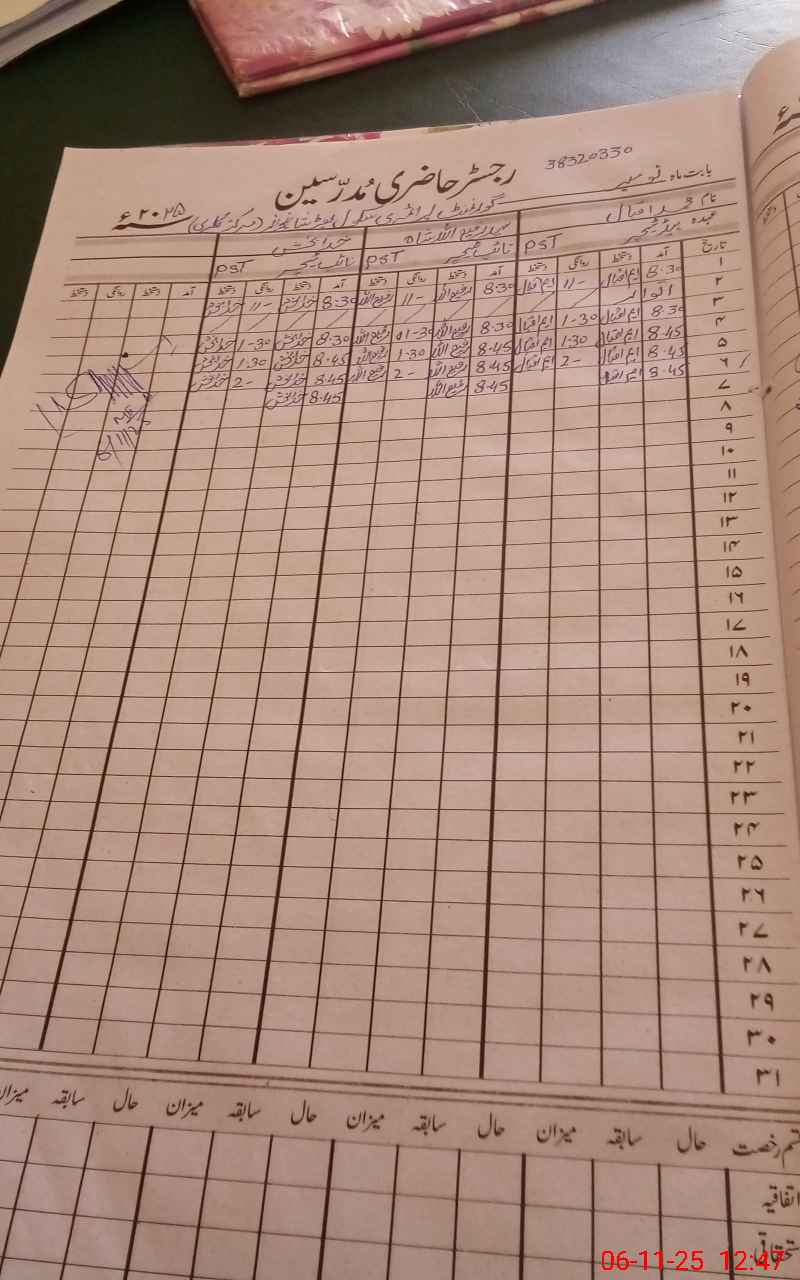 رجسٹر حاضری مُدرّسین 38320330
بابت ماہ نومبر ۲۰۲۵ء
گورنمنٹ پرائمری سکول (مرکز گلاری)
نام محمد اقبال سید رفیع اللہ شاہ خدا بخش
عہدہ ہیڈ ٹیچر PST نائب ٹیچر PST نائب ٹیچر PST
تاریخ آمد دستخط روانگی دستخط آمد دستخط روانگی دستخط آمد دستخط روانگی دستخط آمد دستخط روانگی دستخط
۱ 8.30 ایم اقبال 11- ایم اقبال 8.30 رفیع اللہ 11- رفیع اللہ 8.30 خدا بخش 11- خدا بخش
۲ اتوار
۳ 8.30 ایم اقبال 1-30 ایم اقبال 8.30 رفیع اللہ 1-30 رفیع اللہ 8.30 خدا بخش 1-30 خدا بخش
۴ 8.45 ایم اقبال 1.30 ایم اقبال 8.45 رفیع اللہ 1.30 رفیع اللہ 8.45 خدا بخش 1.30 خدا بخش
۵ 8.45 ایم اقبال 2- ایم اقبال 8.45 رفیع اللہ 2- رفیع اللہ 8.45 خدا بخش 2- خدا بخش
۶ 8.45 ایم اقبال 8.45 رفیع اللہ 8.45 خدا بخش
6/11/25
۷
۸
۹
۱۰
۱۱
۱۲
۱۳
۱۴
۱۵
۱۶
۱۷
۱۸
۱۹
۲۰
۲۱
۲۲
۲۳
۲۴
۲۵
۲۶
۲۷
۲۸
۲۹
۳۰
۳۱
قسم رخصت حال سابقہ میزان حال سابقہ میزان حال سابقہ میزان حال سابقہ میزان
اتفاقیہ
استحقاقی
06-11-25 12:47